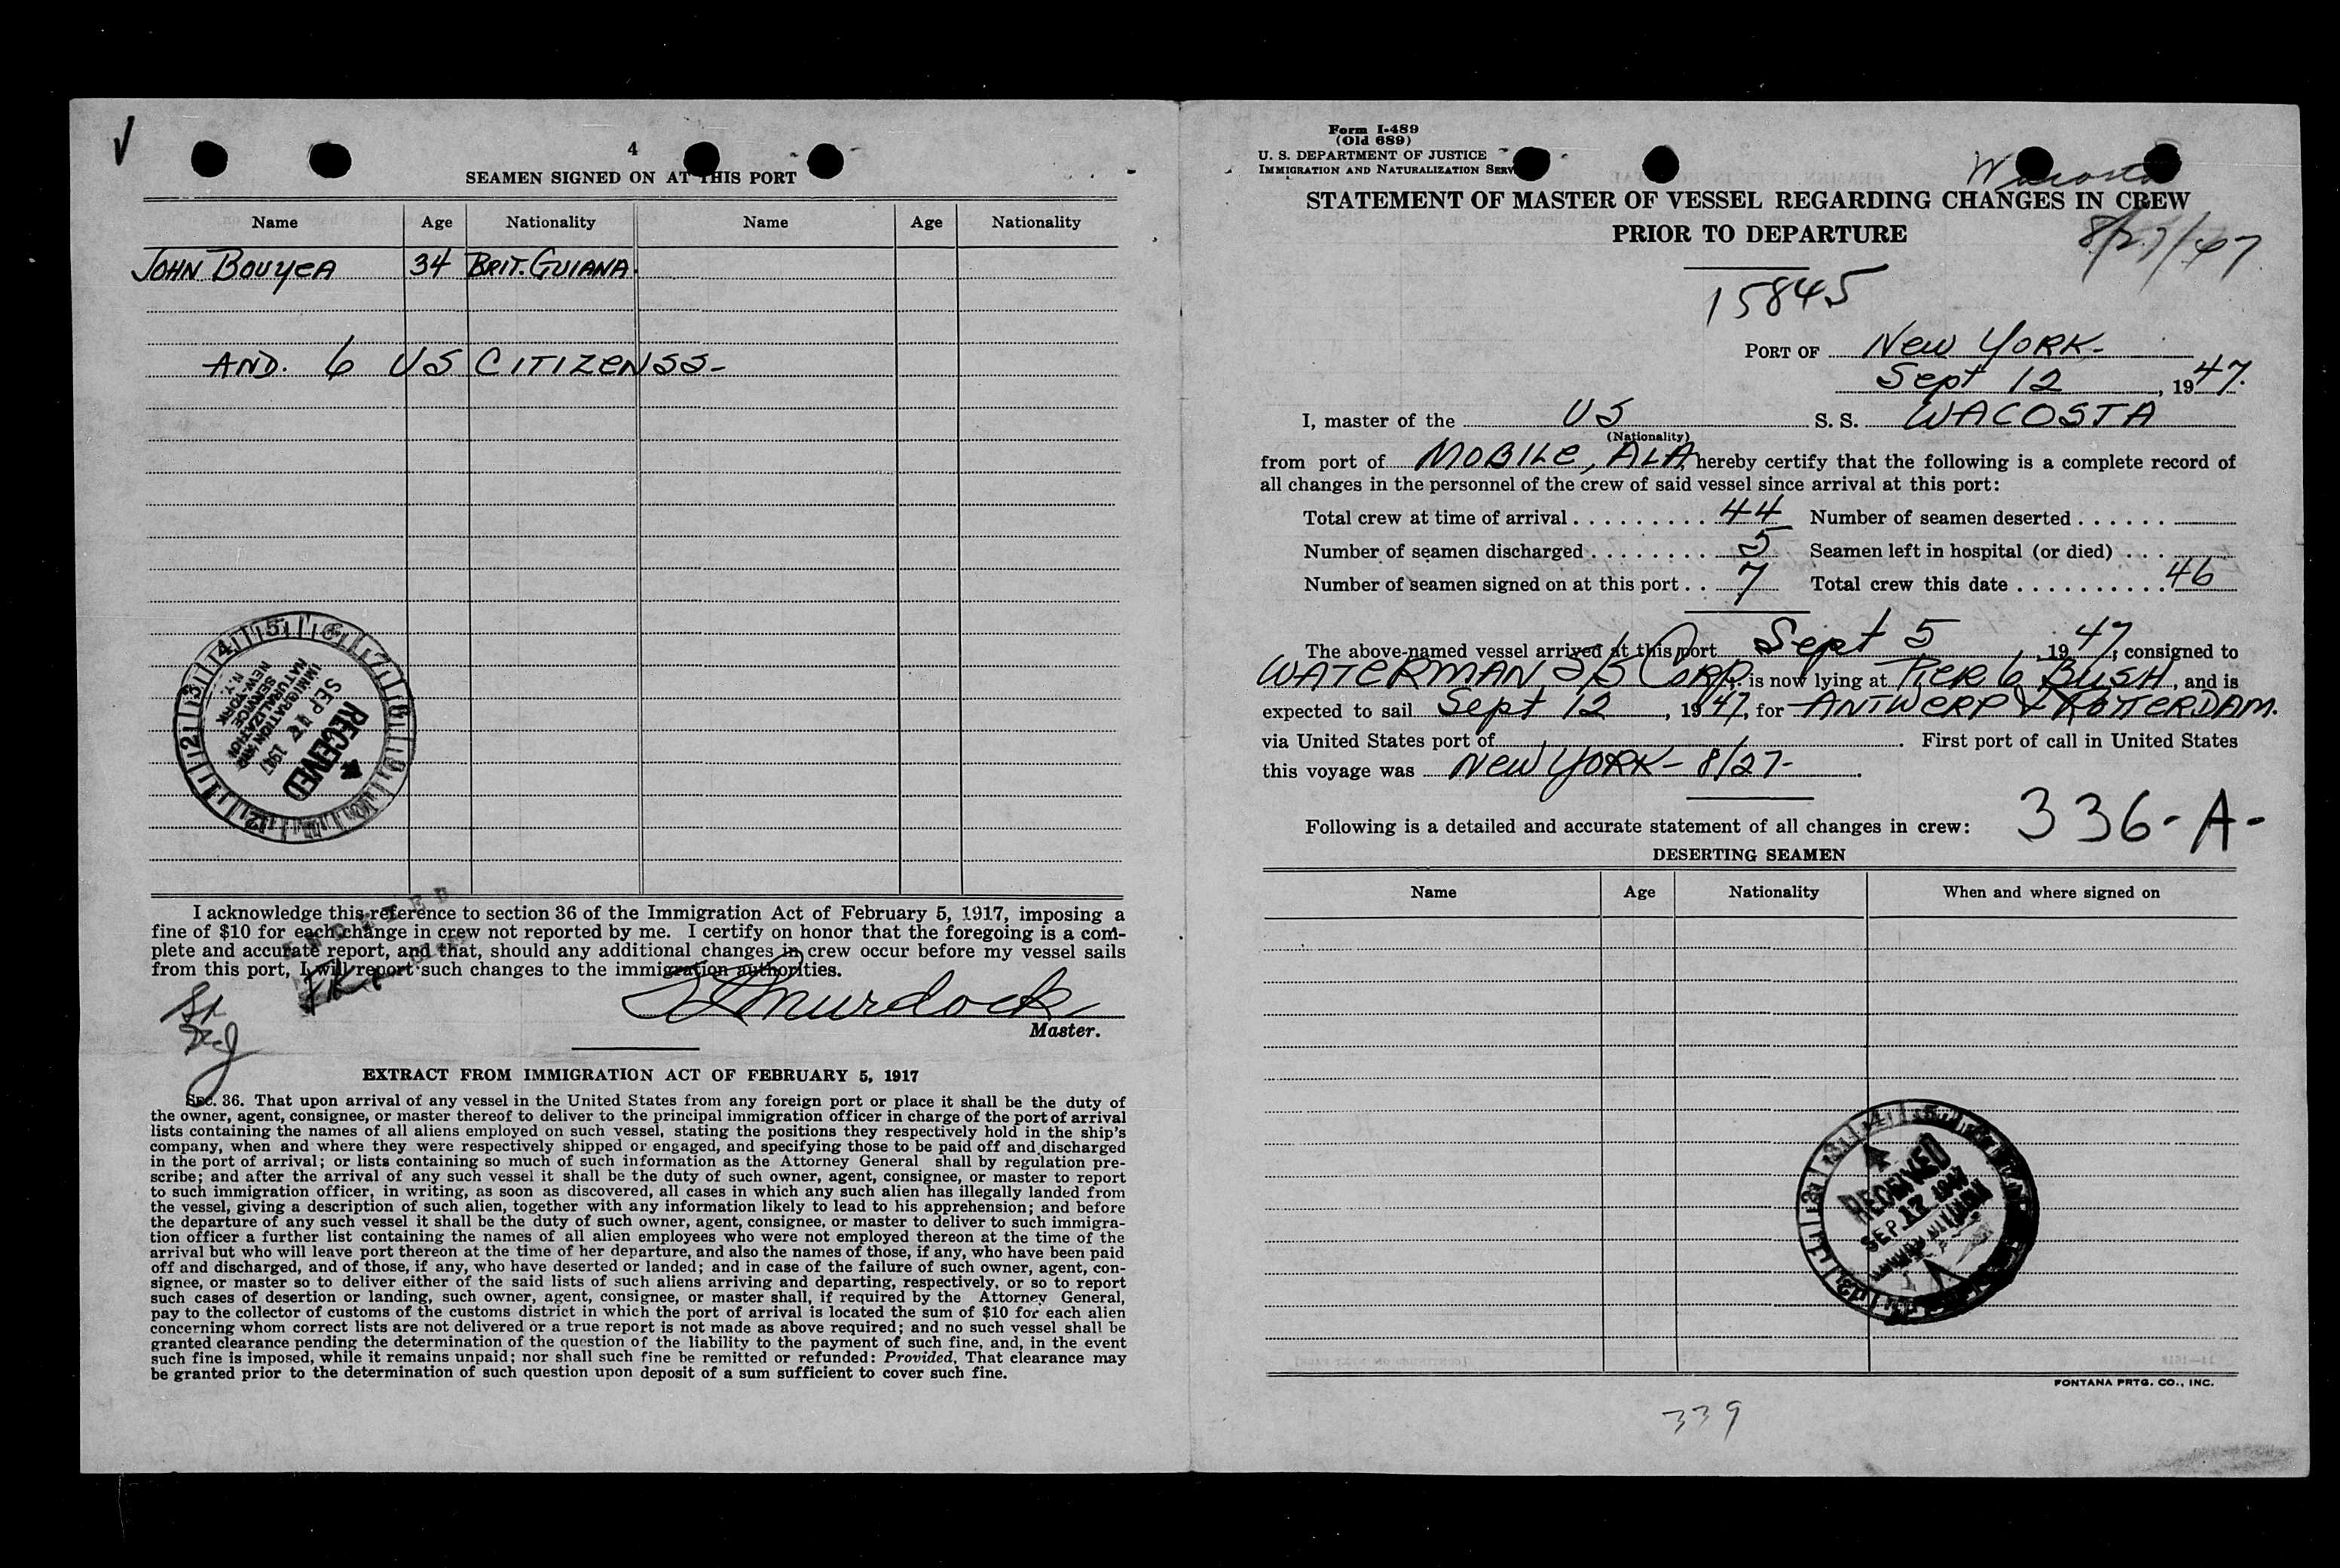 4
SEAMEN SIGNED ON AT THIS PORT
Name Age Nationality Name Age Nationality
JOHN BOUYEA 34 BRIT. GUIANA.
AND. 6 US CITIZENSS-
IMMIGRATION AND
NATURALIZATION
SERVICE
NEW YORK
N.Y.
SEP 1947
RECEIVED
I acknowledge this reference to section 36 of the Immigration Act of February 5, 1917, imposing a
fine of $10 for each change in crew not reported by me. I certify on honor that the foregoing is a com-
plete and accurate report, and that, should any additional changes in crew occur before my vessel sails
from this port, I will report such changes to the immigration authorities.
Murdock
Master.
EXTRACT FROM IMMIGRATION ACT OF FEBRUARY 5, 1917
SEC. 36. That upon arrival of any vessel in the United States from any foreign port or place it shall be the duty of
the owner, agent, consignee, or master thereof to deliver to the principal immigration officer in charge of the port of arrival
lists containing the names of all aliens employed on such vessel, stating the positions they respectively hold in the ship's
company, when and where they were respectively shipped or engaged, and specifying those to be paid off and discharged
in the port of arrival; or lists containing so much of such information as the Attorney General shall by regulation pre-
scribe; and after the arrival of any such vessel it shall be the duty of such owner, agent, consignee, or master to report
to such immigration officer, in writing, as soon as discovered, all cases in which any such alien has illegally landed from
the vessel, giving a description of such alien, together with any information likely to lead to his apprehension; and before
the departure of any such vessel it shall be the duty of such owner, agent, consignee, or master to deliver to such immigra-
tion officer a further list containing the names of all alien employees who were not employed thereon at the time of the
arrival but who will leave port thereon at the time of her departure, and also the names of those, if any, who have been paid
off and discharged, and of those, if any, who have deserted or landed; and in case of the failure of such owner, agent, con-
signee, or master so to deliver either of the said lists of such aliens arriving and departing, respectively, or so to report
such cases of desertion or landing, such owner, agent, consignee, or master shall, if required by the Attorney General,
pay to the collector of customs of the customs district in which the port of arrival is located the sum of $10 for each alien
concerning whom correct lists are not delivered or a true report is not made as above required; and no such vessel shall be
granted clearance pending the determination of the question of the liability to the payment of such fine, and, in the event
such fine is imposed, while it remains unpaid; nor shall such fine be remitted or refunded: Provided, That clearance may
be granted prior to the determination of such question upon deposit of a sum sufficient to cover such fine.
Form I-489
(Old 689)
U. S. DEPARTMENT OF JUSTICE
IMMIGRATION AND NATURALIZATION SERV
Wacosta
STATEMENT OF MASTER OF VESSEL REGARDING CHANGES IN CREW
PRIOR TO DEPARTURE
8/27/47
15845
PORT OF New YORK-
Sept 12, 1947.
I, master of the US S. S. WACOSTA
(Nationality)
from port of MOBILE, ALA hereby certify that the following is a complete record of
all changes in the personnel of the crew of said vessel since arrival at this port:
Total crew at time of arrival . . . . . . . . . 44 Number of seamen deserted . . . . . .
Number of seamen discharged . . . . . . . . 5 Seamen left in hospital (or died) . . .
Number of seamen signed on at this port . . 7 Total crew this date . . . . . . . . . . 46
The above-named vessel arrived at this port Sept 5, 1947, consigned to
WATERMAN S/S CORP. is now lying at PIER 6 BUSH, and is
expected to sail Sept 12, 1947, for ANTWERP & ROTTERDAM.
via United States port of . First port of call in United States
this voyage was New YORK- 8/27- .
Following is a detailed and accurate statement of all changes in crew: 336-A-
DESERTING SEAMEN
Name Age Nationality When and where signed on
RECEIVED
SEP 12 1947
FONTANA PRTG. CO., INC.
339